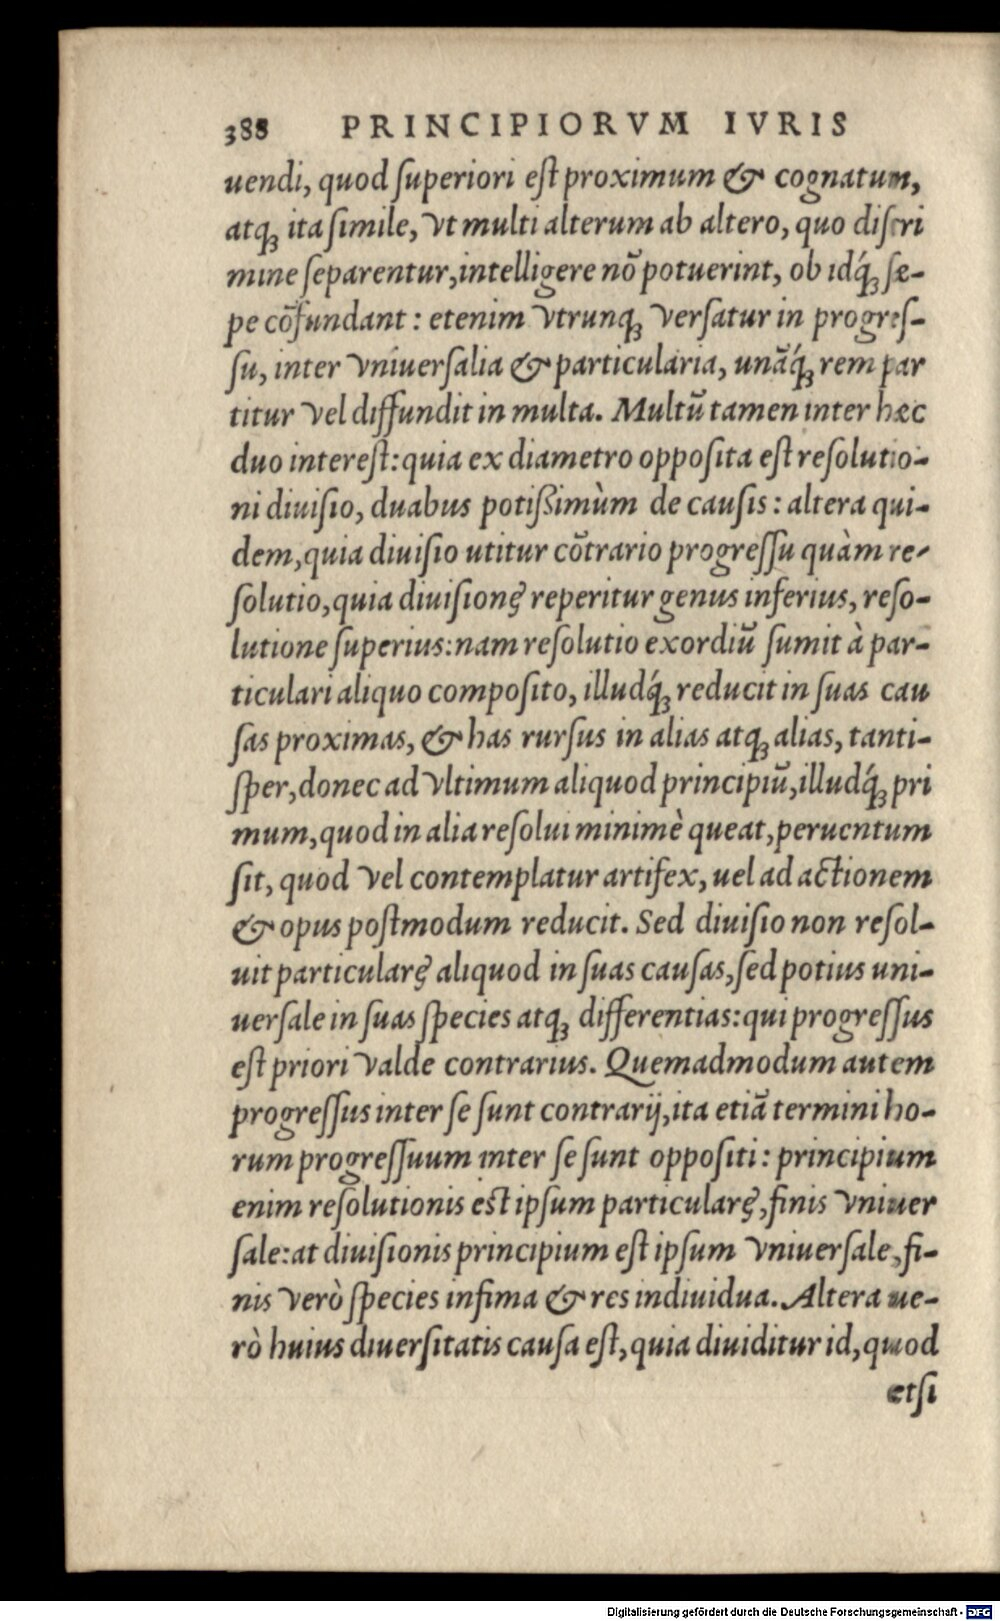 388 PRINCIPIORVM IVRIS
uendi, quod ſuperiori eſt proximum & cognatum,
atq; ita ſimile, vt multi alterum ab altero, quo diſcri
mine ſeparentur, intelligere nõ potuerint, ob idq́; ſæ-
pe cõfundant : etenim vtrunq; verſatur in progreſ-
ſu, inter vniuerſalia & particularia, unãq́; rem par
titur vel diffundit in multa. Multũ tamen inter hæc
duo intereſt: quia ex diametro oppoſita eſt reſolutio-
ni diuiſio, duabus potißimùm de cauſis : altera qui-
dem, quia diuiſio utitur cõtrario progreſſu quàm re-
ſolutio, quia diuiſionę reperitur genus inferius, reſo-
lutione ſuperius: nam reſolutio exordiũ ſumit à par-
ticulari aliquo compoſito, illudq́; reducit in ſuas cau
ſas proximas, & has rurſus in alias atq; alias, tanti-
ſper, donec ad vltimum aliquod principiũ, illudq́; pri
mum, quod in alia reſolui minimè queat, peruentum
ſit, quod vel contemplatur artifex, uel ad actionem
& opus poſtmodum reducit. Sed diuiſio non reſol-
uit particularę aliquod in ſuas cauſas, ſed potius uni-
uerſale in ſuas ſpecies atq; differentias: qui progreſſus
eſt priori valde contrarius. Quemadmodum autem
progreſſus inter ſe ſunt contrarij, ita etiã termini ho-
rum progreſſuum inter ſe ſunt oppoſiti : principium
enim reſolutionis eſt ipſum particularę, finis vniuer
ſale: at diuiſionis principium eſt ipſum vniuerſale, fi-
nis verò ſpecies infima & res indiuidua. Altera ue-
rò huius diuerſitatis cauſa eſt, quia diuiditur id, quod
etſi
Digitalisierung gefördert durch die Deutsche Forschungsgemeinschaft - DFG